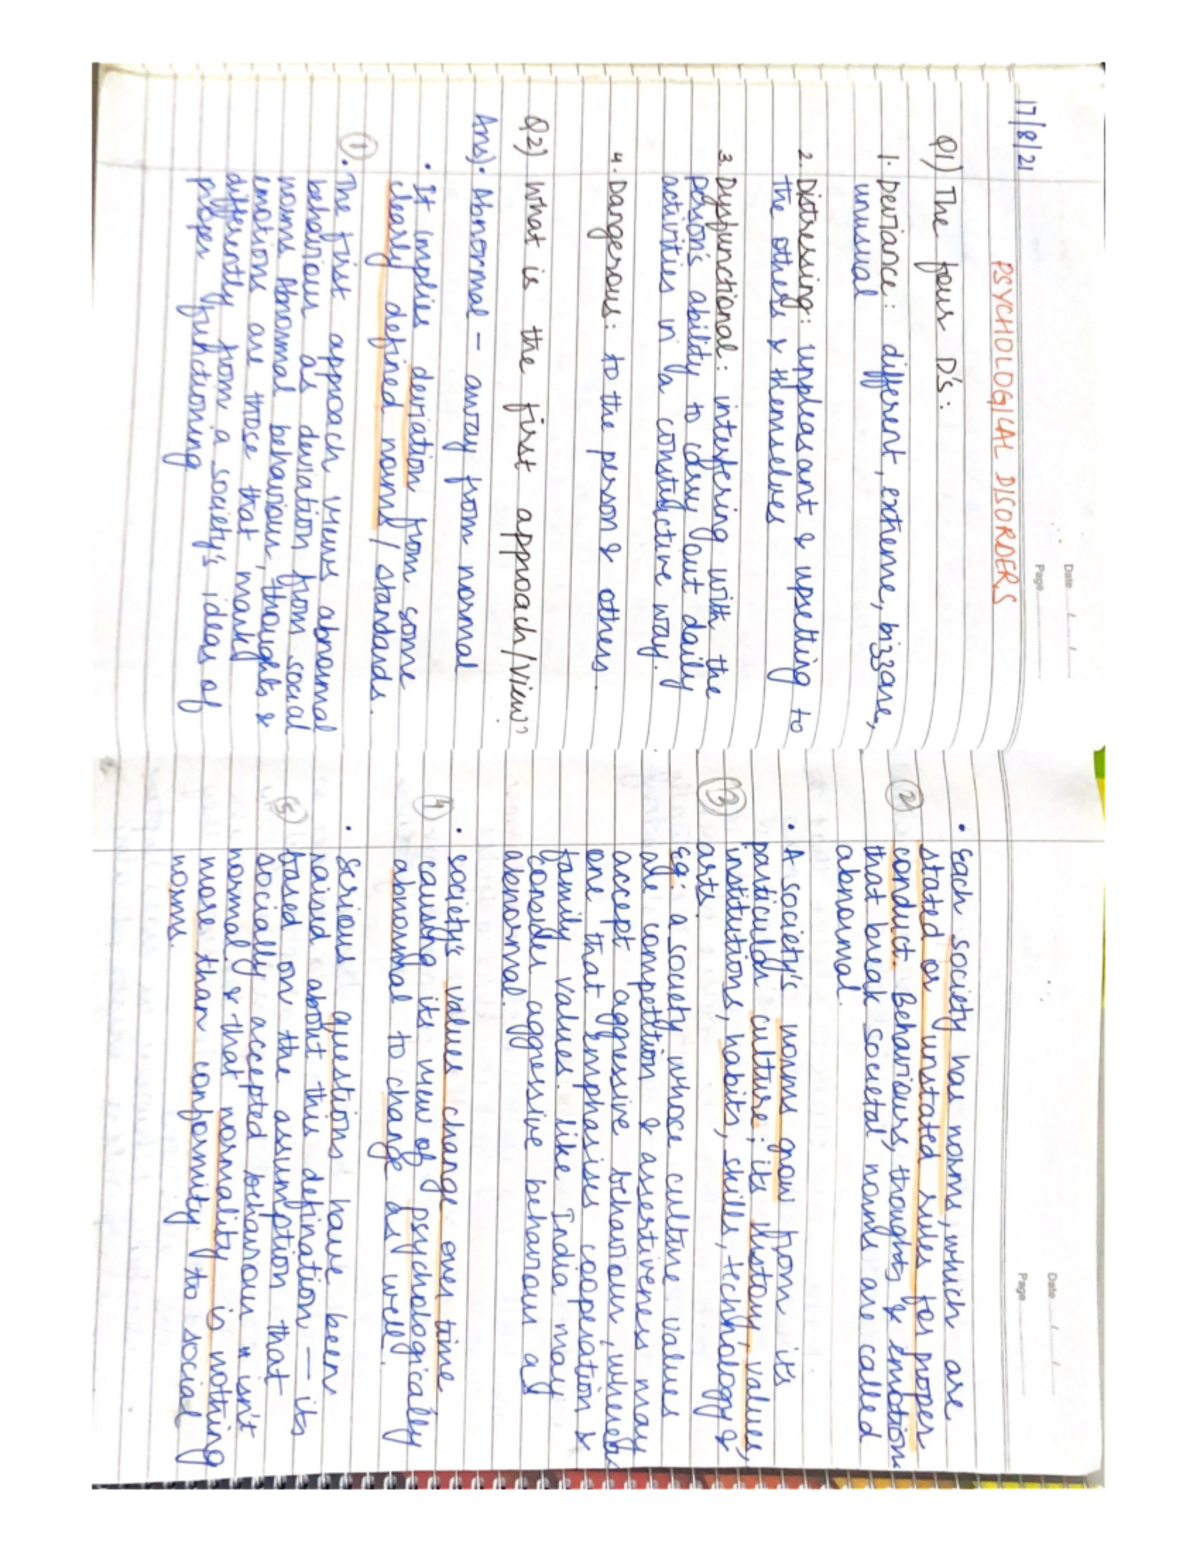 Date
Page
17/8/21
PSYCHOLOGICAL DISORDERS
Q1) The four D's:
1. Deviance: different, extreme, bizzare,
unusual
2. Distressing: unpleasant & upsetting to
the others & themselves
3. Dysfunctional: interfering with the
person's ability to carry out daily
activities in a constructive way.
4. Dangerous: to the person & others.
Q2) What is the first approach/view?
Ans)• Abnormal – away from normal
• It implies deviation from some
clearly defined norms/standards.
① • The first approach views abnormal
behaviour as deviation from social
norms Abnormal behaviour, thoughts &
emotions are those that mark
differently from a society's ideas of
proper funtctioning
Date
Page
• Each society has norms, which are
② stated or unstated rules for proper
conduct. Behaviours, thoughts & emotions
that break societal norms are called
abnormal.
• A society's norms grow from its
particular culture; its history, values,
③ institutions, habits, skills, technology &
arts.
Eg: a society whose culture values
the competition & assertiveness may
accept aggressive behaviour, whereas
one that emphasises cooperation &
family values. like India may
consider aggressive behaviour as
abnormal.
• society's values change over time
④ causing its view of psychologically
abnormal to change as well.
• Serious questions have been
raised about this defination — its
⑤ based on the assumption that
socially accepted behaviour isn't
normal & that normality is nothing
more than conformity to social
norms.